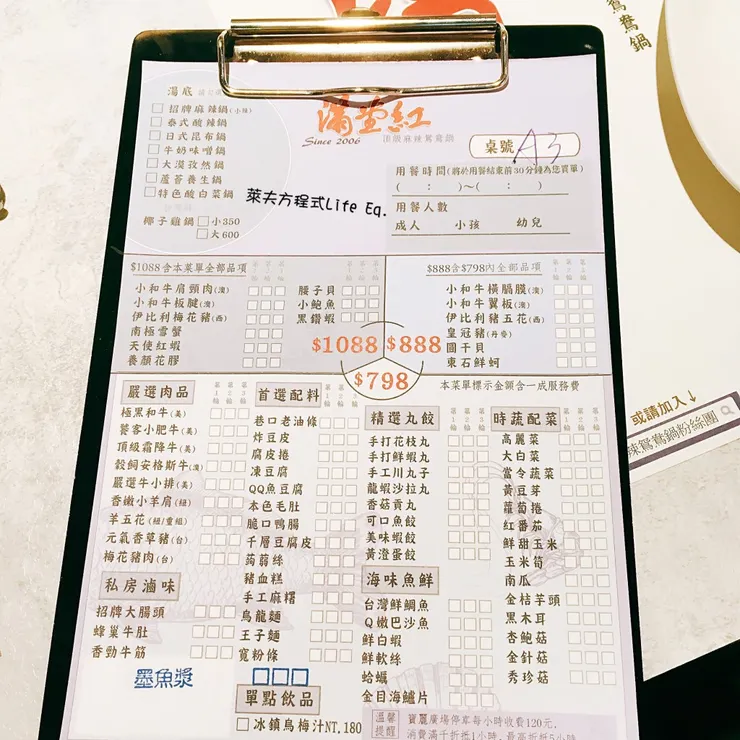 鴛鴦鍋
湯底
招牌麻辣鍋(小辣)
泰式酸辣鍋
日式昆布鍋
牛奶味噌鍋
大漠孜然鍋
蘆薈養生鍋
特色酸白菜鍋
椰子雞鍋 小350
大600
滿堂紅
Since 2006 頂級麻辣鴛鴦鍋
桌號 A3
用餐時間(將於用餐結束前30分鐘為您買單)
( : )~( : )
用餐人數
成人 小孩 幼兒
萊夫方程式Life Eq.
$1088含本菜單全部品項 第1輪 第2輪 第3輪
小和牛肩頸肉(澳)
小和牛板腱(澳)
伊比利梅花豬(西)
南極雪蟹
天使紅蝦
養顏花膠
第1輪 第2輪 第3輪
腰子貝
小鮑魚
黑鑽蝦
$888含$798內全部品項 第1輪 第2輪 第3輪
小和牛橫膈膜(澳)
小和牛翼板(澳)
伊比利豬五花(西)
皇冠豬(丹麥)
圓干貝
東石鮮蚵
$1088 $888
$798
本菜單標示金額含一成服務費
嚴選肉品 第1輪 第2輪 第3輪
極黑和牛(美)
饕客小肥牛(美)
頂級霜降牛(美)
穀飼安格斯牛(澳)
嚴選牛小排(美)
香嫩小羊肩(紐)
羊五花(紐/重組)
元氣香草豬(台)
梅花豬肉(台)
私房滷味
招牌大腸頭
蜂巢牛肚
香勁牛筋
墨魚漿
首選配料 第1輪 第2輪 第3輪
巷口老油條
炸豆皮
腐皮捲
凍豆腐
QQ魚豆腐
本色毛肚
脆口鴨腸
千層豆腐皮
蒟蒻絲
豬血糕
手工麻糬
烏龍麵
王子麵
寬粉條
單點飲品
冰鎮烏梅汁NT.180
精選丸餃 第1輪 第2輪 第3輪
手打花枝丸
手打鮮蝦丸
手工川丸子
龍蝦沙拉丸
香菇貢丸
可口魚餃
美味蝦餃
黃澄蛋餃
海味魚鮮
台灣鮮鯛魚
Q嫩巴沙魚
鮮白蝦
鮮軟絲
蛤蠣
金目海鱸片
時蔬配菜 第1輪 第2輪 第3輪
高麗菜
大白菜
當令蔬菜
黃豆芽
蘿蔔捲
紅番茄
鮮甜玉米
玉米筍
南瓜
金桔芋頭
黑木耳
杏鮑菇
金針菇
秀珍菇
溫馨提醒
寶麗廣場停車每小時收費120元,
消費滿千折抵1小時,最高折抵5小時
或請加入↓
辣鴛鴦鍋粉絲團